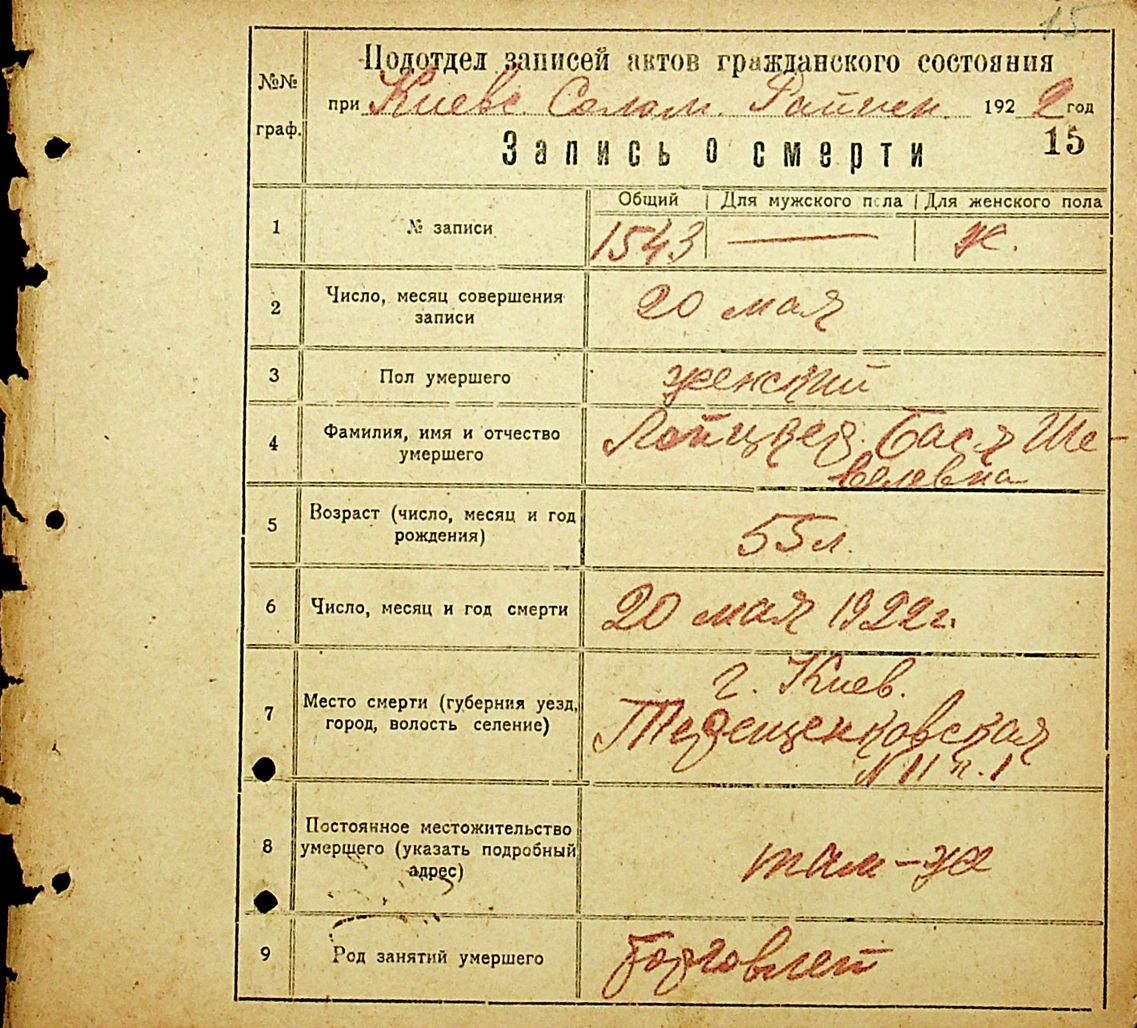 15
№№ граф.
Подотдел записей актов гражданского состояния
при Киевс. Солом. Райиск. 1922 год
Запись о смерти 15
Общий Для мужского пола Для женского пола
1 № записи 1543 — ж.
2 Число, месяц совершения
записи 20 мая
3 Пол умершего женский
4 Фамилия, имя и отчество
умершего Лойцкер Бася Ше-
велевна
5 Возраст (число, месяц и год
рождения) 55 л.
6 Число, месяц и год смерти 20 мая 1922 г.
7 Место смерти (губерния уезд,
город, волость селение) г. Киев.
Терещенковская
N 11 к. 1
8 Постоянное местожительство
умершего (указать подробный
адрес) там-же
9 Род занятий умершего Торговлей